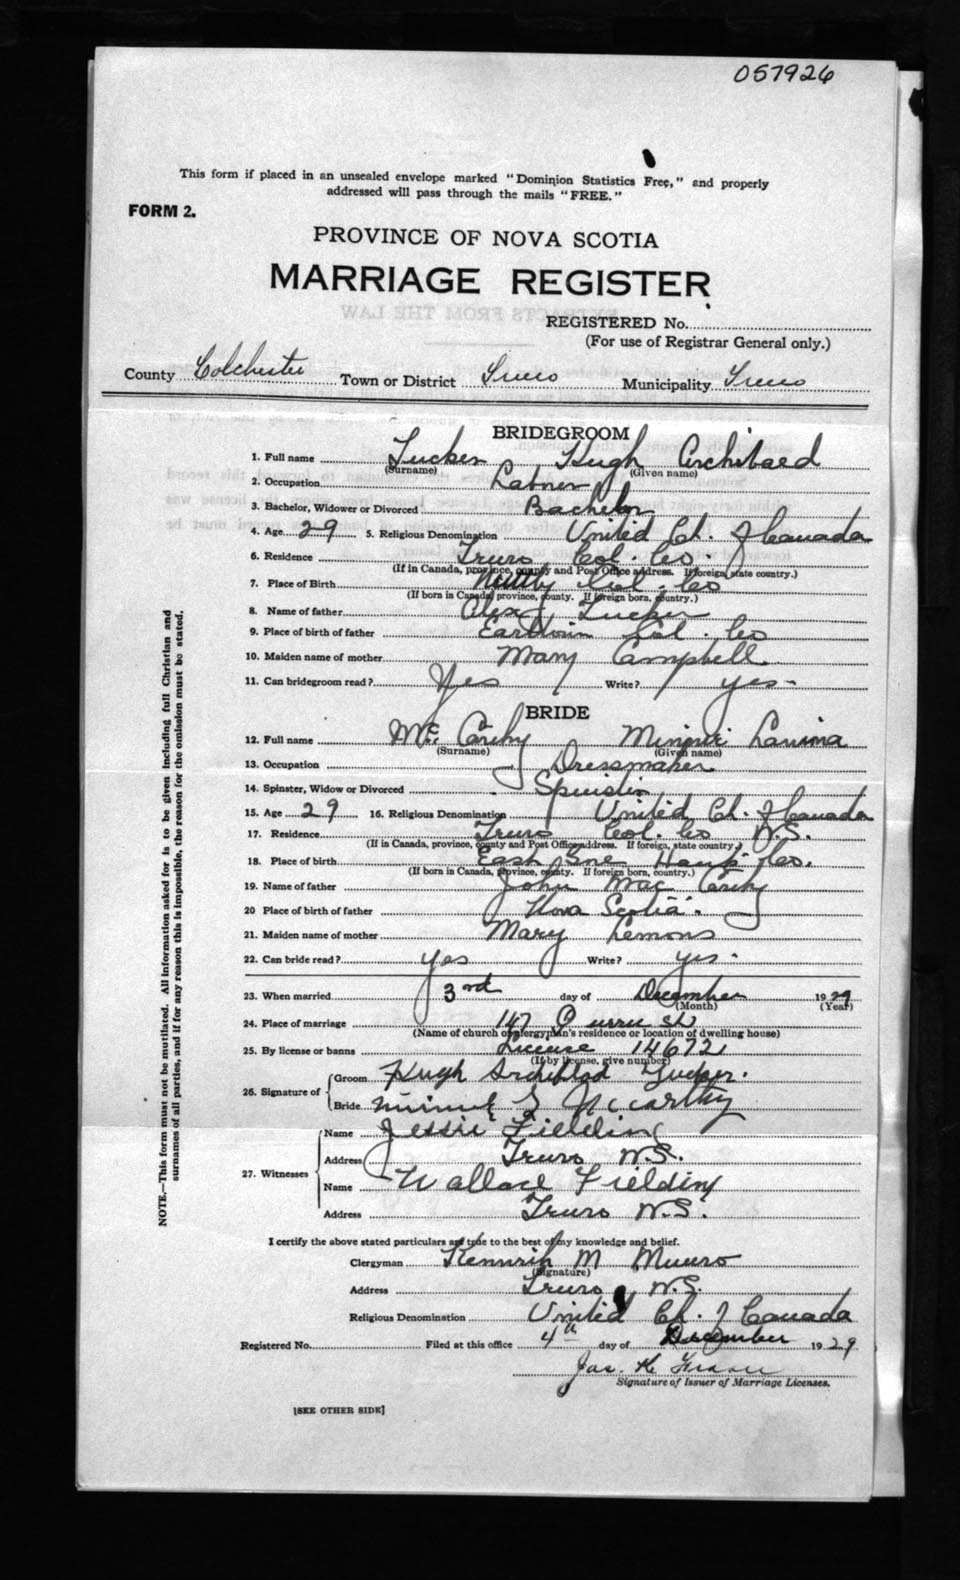 057926
This form if placed in an unsealed envelope marked "Dominion Statistics Free," and properly
addressed will pass through the mails "FREE."
FORM 2.
PROVINCE OF NOVA SCOTIA
MARRIAGE REGISTER
REGISTERED No.
(For use of Registrar General only.)
County Colchester Town or District Truro Municipality Truro
BRIDEGROOM
1. Full name Tucker Hugh Archibald
(Surname) (Given name)
2. Occupation Laborer
3. Bachelor, Widower or Divorced Bachelor
4. Age 29 5. Religious Denomination United Ch. of Canada
6. Residence Truro Col. Co
(If in Canada, province, county and Post Office address. If foreign, state country.)
7. Place of Birth Nuttby Col Co
(If born in Canada, province, county. If foreign born, country.)
8. Name of father Alex Tucker
9. Place of birth of father Earltown Col. Co
10. Maiden name of mother Mary Campbell
11. Can bridegroom read? Yes Write? yes-
BRIDE
12. Full name Mc Carthy Minnie Lavinia
(Surname) (Given name)
13. Occupation Dressmaker
14. Spinster, Widow or Divorced Spinster
15. Age 29 16. Religious Denomination United Ch. of Canada
17. Residence Truro Col. Co N.S.
(If in Canada, province, county and Post Office address. If foreign, state country.)
18. Place of birth East Hants Co.
(If born in Canada, province, county. If foreign born, country.)
19. Name of father John Mac Carthy
20 Place of birth of father Nova Scotia.
21. Maiden name of mother Mary Lemons
22. Can bride read? yes Write? yes.
23. When married 3rd day of December 1929
(Month) (Year)
24. Place of marriage 147 Queen St
(Name of church or clergyman's residence or location of dwelling house)
25. By license or banns License 14672
(If by license, give number)
26. Signature of Groom Hugh Archibald Tucker.
Bride Minnie L McCarthy
27. Witnesses Name Jessie Fielding
Address Truro N.S.
Name Wallace Fielding
Address Truro N.S.
I certify the above stated particulars are true to the best of my knowledge and belief.
Clergyman M Munro
(Signature)
Address Truro, N.S.
Religious Denomination United Ch. of Canada
Registered No. Filed at this office 4th day of December 1929
Jas. Fraser
Signature of Issuer of Marriage Licenses.
[SEE OTHER SIDE]
NOTE.—This form must not be mutilated. All information asked for is to be given including full Christian and
surnames of all parties, and if for any reason this is impossible, the reason for the omission must be stated.